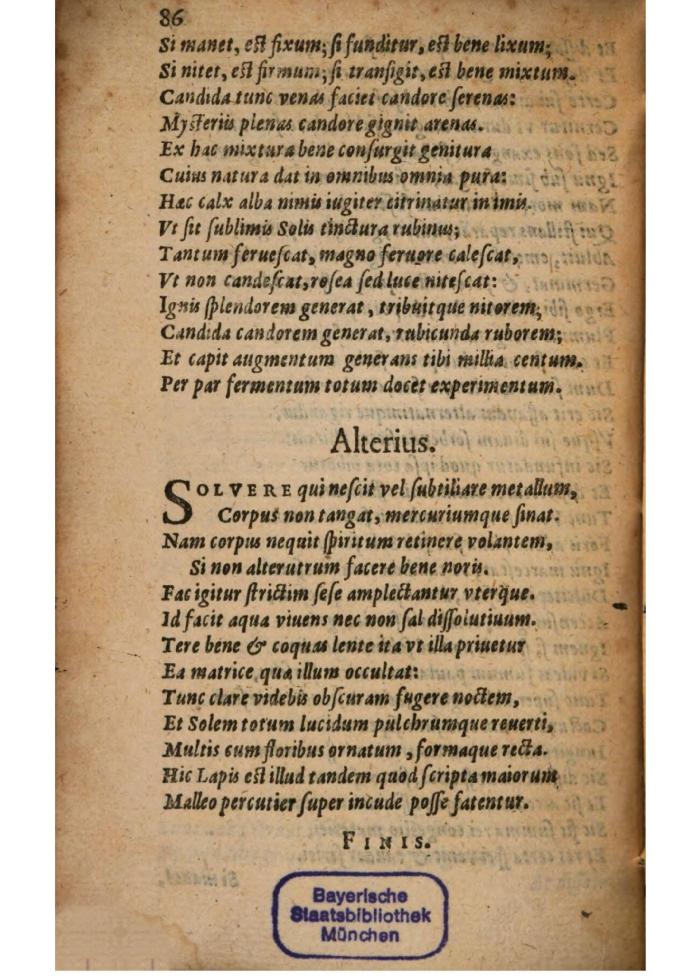 86
Si manet, est fixum; si funditur, est bene lixum;
Si nitet, est firmum; si transigit, est bene mixtum.
Candida tunc venas faciet candore serenas:
Mysteriis plenas candore gignit arenas.
Ex hac mixtura bene consurgit genitura
Cuius natura dat in omnibus omnia pura:
Hæc calx alba nimis iugiter citrinatur in imis.
Vt sit sublimis Solis tinctura rubinus;
Tantum feruescat, magno feruore calescat,
Vt non candescat, rosea sed luce nitescat:
Ignis splendorem generat, tribuitque nitorem;
Candida candorem generat, rubicunda ruborem;
Et capit augmentum generans tibi millia centum.
Per par fermentum totum docet experimentum.
Alterius.
SOLVERE qui nescit vel subtiliare metallum,
Corpus non tangat, mercuriumque sinat.
Nam corpus nequit spiritum retinere volantem,
Si non alterutrum facere bene noris.
Fac igitur strictim sese amplectantur vterque.
Id facit aqua viuens nec non sal dissolutiuum.
Tere bene & coquas lente ita vt illa priuetur
Ea matrice qua illum occultat:
Tunc clare videbis obscuram fugere noctem,
Et Solem totum lucidum pulchrumque reuerti,
Multis cum floribus ornatum, formaque recta.
Hic Lapis est illud tandem quod scripta maiorum
Malleo percutier super incude posse fatentur.
FINIS.
Bayerische
Staatsbibliothek
München